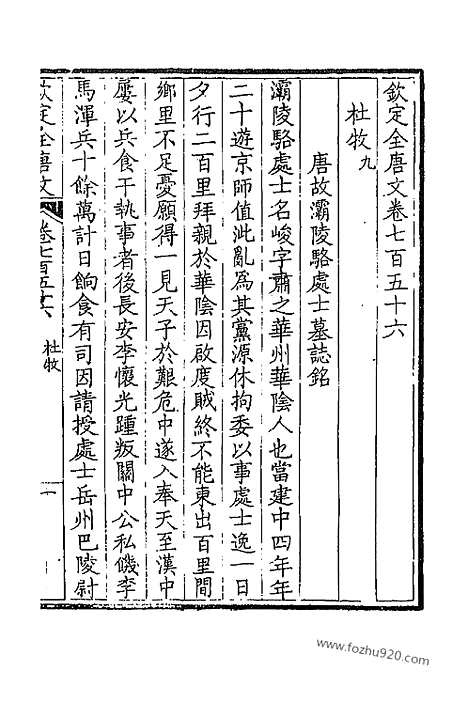 欽定全唐文卷七百五十六
杜牧九
唐故灞陵駱處士墓誌銘
灞陵駱處士名峻字肅之華州華陰人也當建中四年年
二十遊京師值泚亂為其黨源休拘委以事處士逸一日
夕行二百里拜親於華陰因啟度賊終不能東出百里間
鄉里不足憂願得一見天子於艱危中遂入奉天至漢中
屢以兵食干執事者後長安李懷光踵叛關中公私饑李
馬渾兵十餘萬計日餉食有司因請授處士岳州巴陵尉
欽定全唐文
卷七百五十六
杜牧
一
www.fozhu920.com